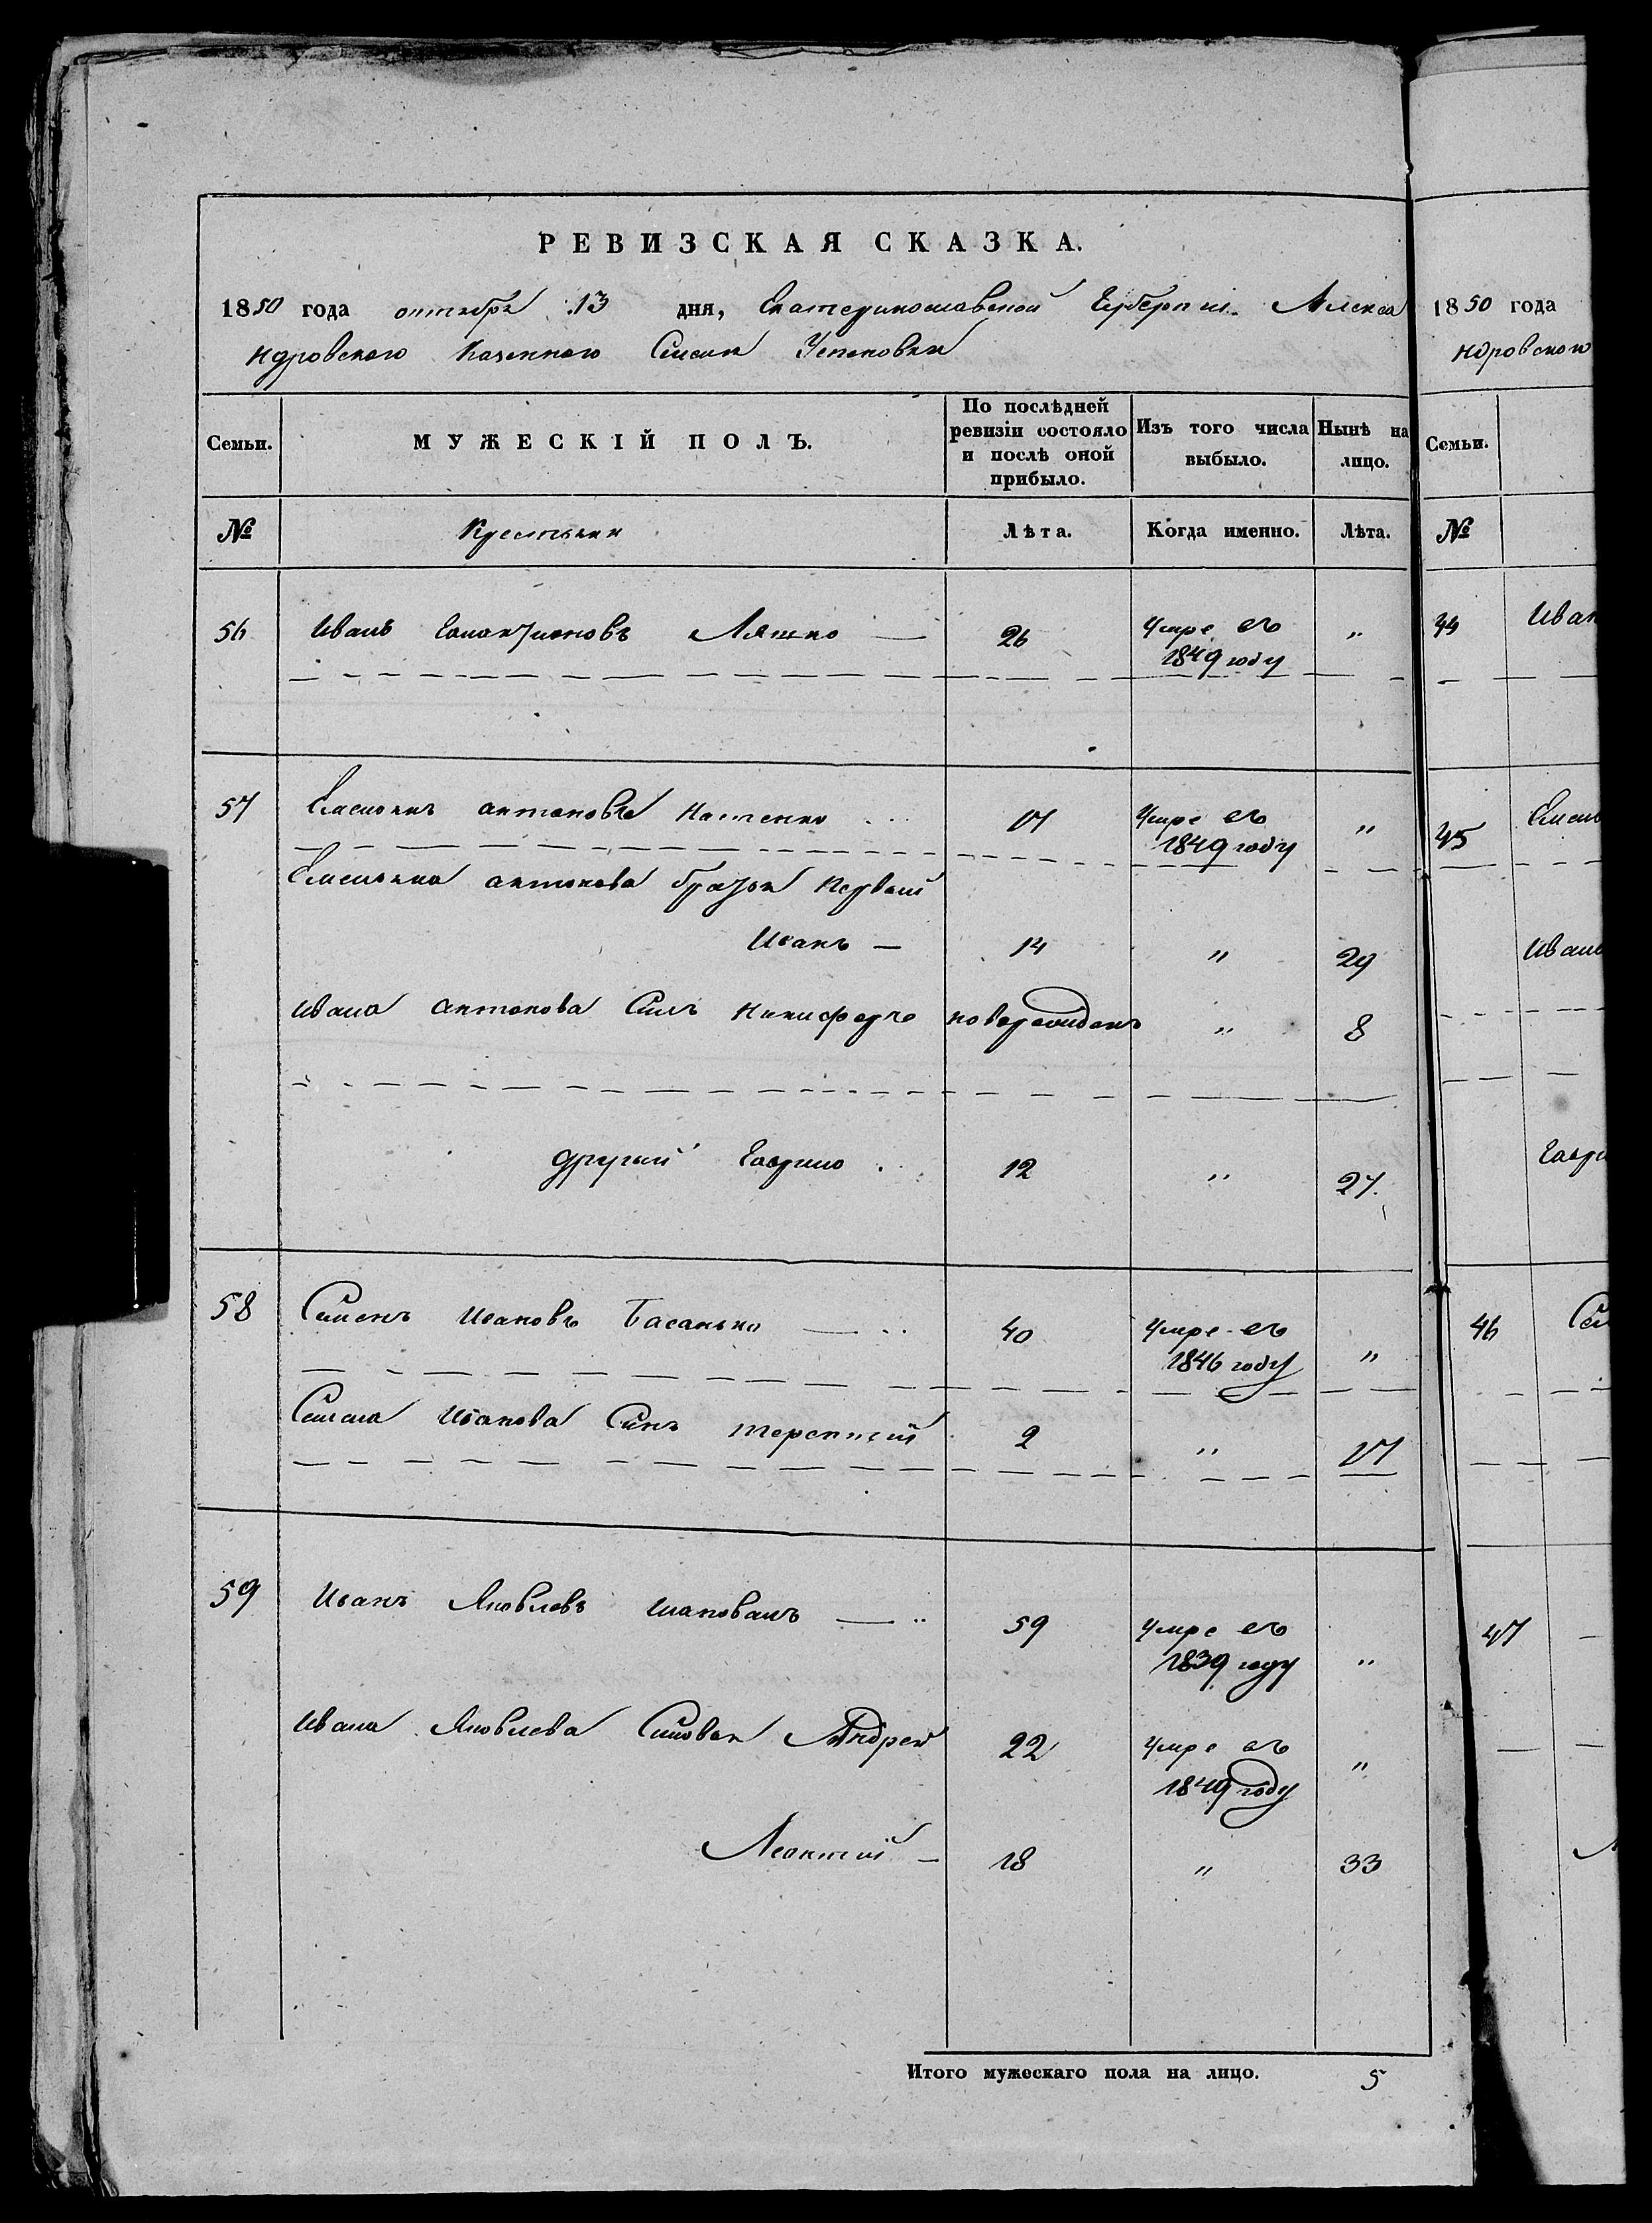 РЕВИЗСКАЯ СКАЗКА.
1850 года октября 13 дня, Екатеринославской Губерніи Алекса
ндровского Казенного Селенія Успеновки
Семьи. МУЖЕСКІЙ ПОЛЪ. По послѣдней ревизіи состояло и послѣ оной прибыло. Изъ того числа выбыло. Нынѣ на лицо.
№ Крестьяни Лѣта. Когда именно. Лѣта.
56 Иванъ Ляшко — 26 умре въ 1849 году "
57 Емельянъ антоновъ 17 умре въ 1849 году "
Емельяна антонова братья первый
Иванъ — 14 " 29
Ивана антонова Синъ Никифоръ новорожденъ " 8
другий Гаврило 12 " 27
58 Семенъ Ивановъ Басанько — 40 умре въ 1846 году "
Семена Иванова Синъ терентій 2 " 17
59 Иванъ Яковлевъ шаповалъ — 59 умре въ 1839 году "
Ивана Яковлева Синовья Андрей 22 умре въ 1849 году "
Леонтій — 18 " 33
Итого мужескаго пола на лицо. 5
1850 года
ндровского
Семьи.
№
44 Иван
45 Емель
Иванъ
Гаври
46 Сем
47